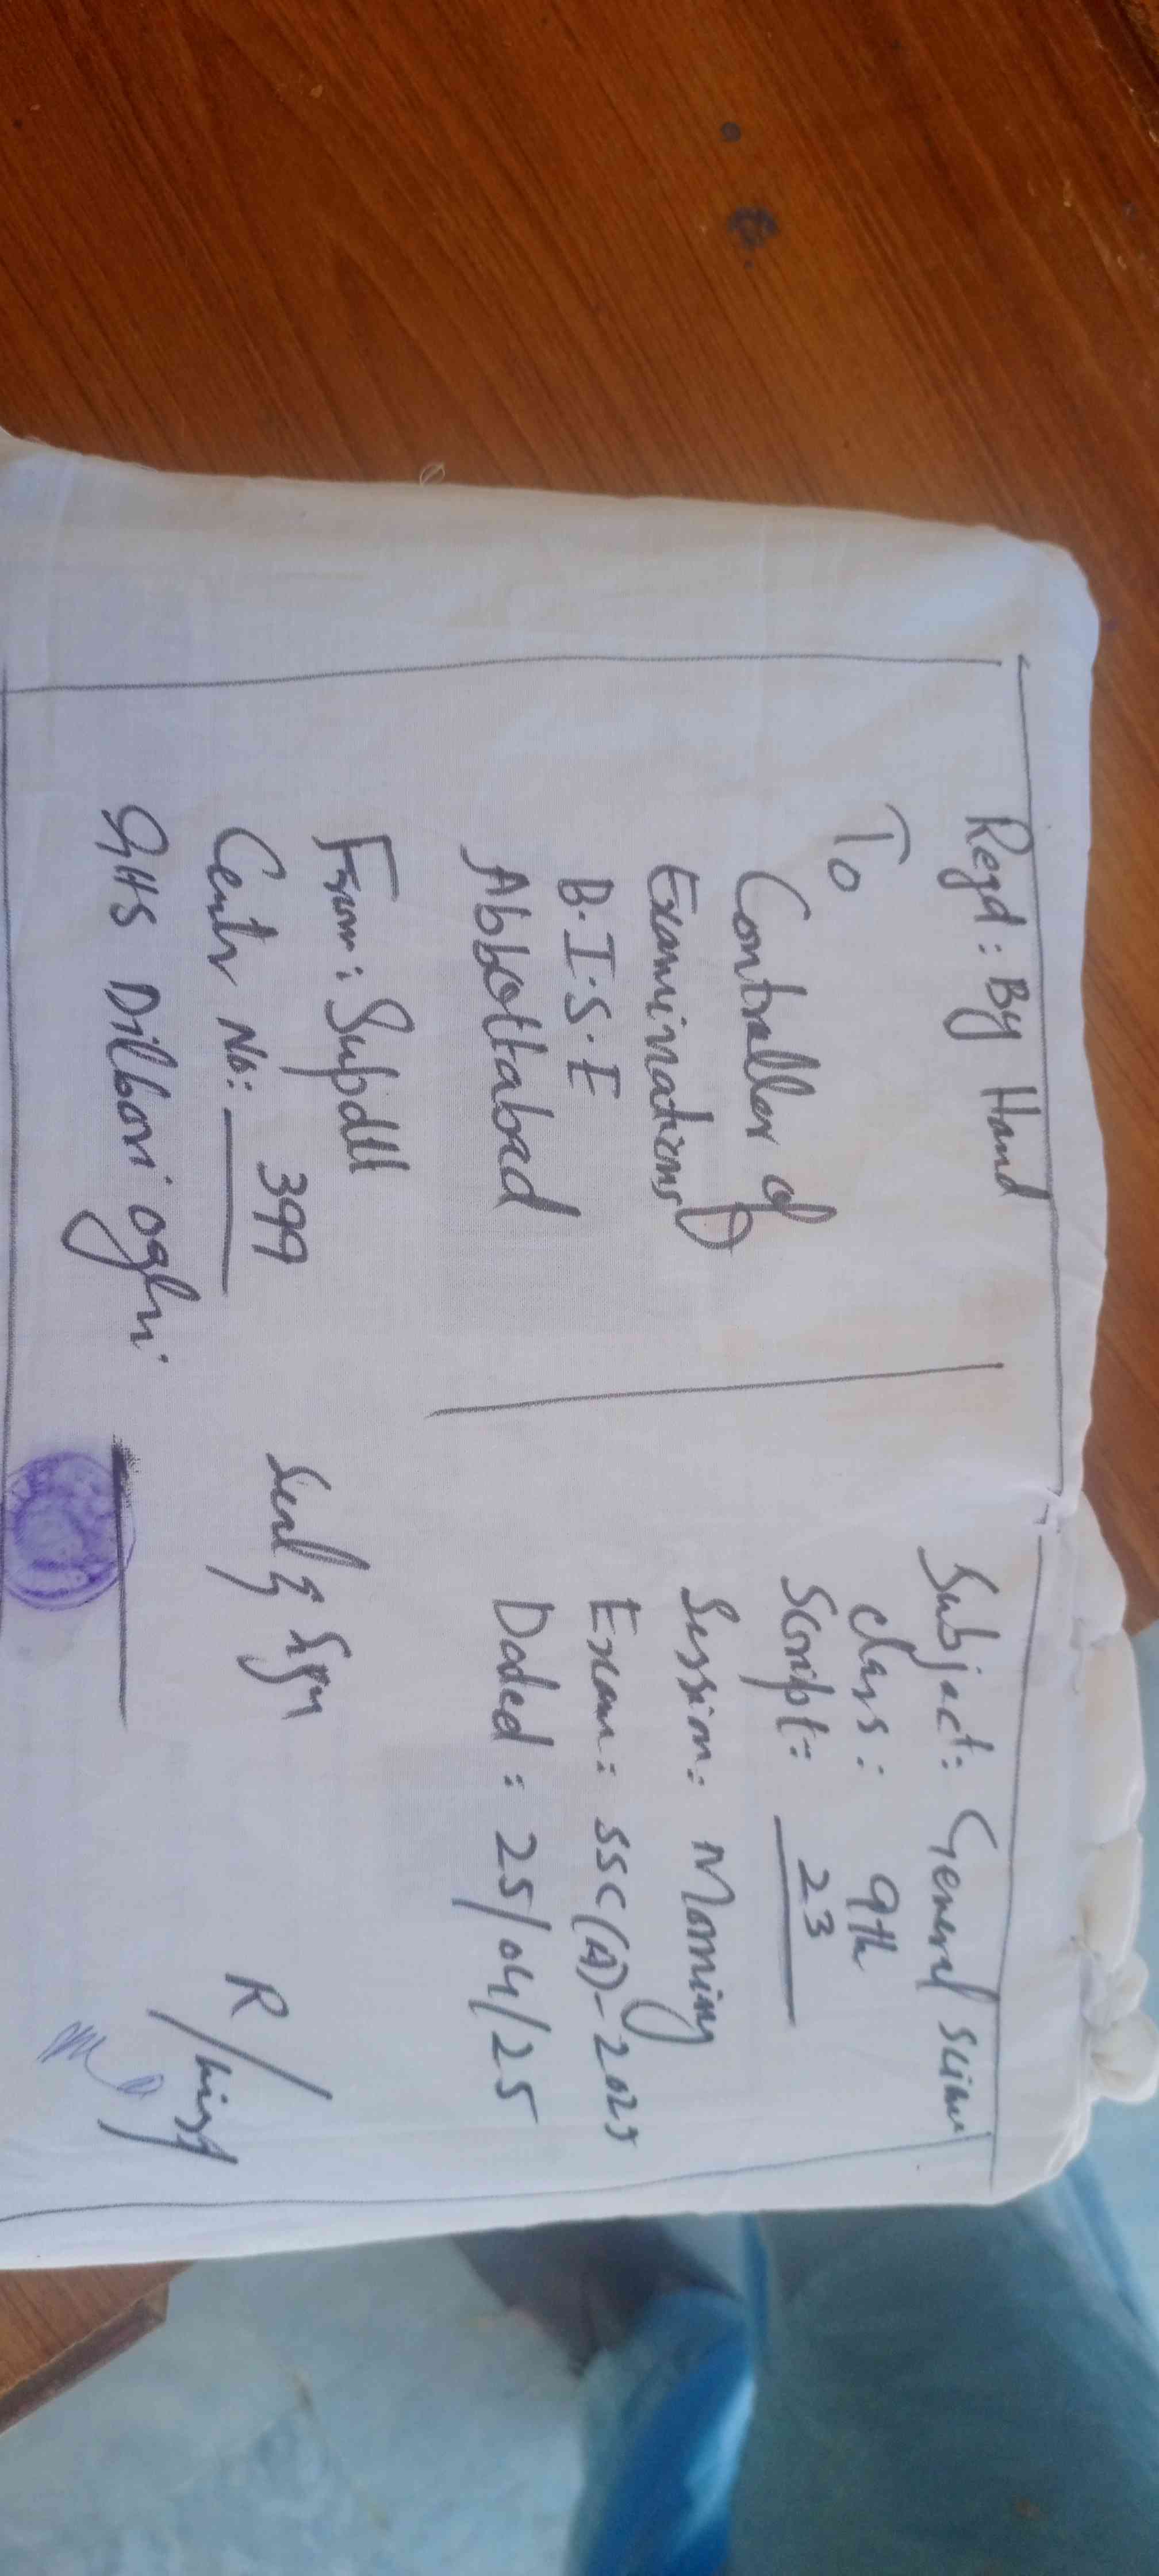 Regd: By Hand
To
Controller of
Examinations
B.I.S.E
Abbottabad
From: Supdtt
Centr No: 399
GHS Dilbori oghi
Subject: General scinc
class: 9th
Script: 23
Session: Morning
Exam: SSC(A)-2025
Dated: 25/04/25
Seal & Sign
R/Insp